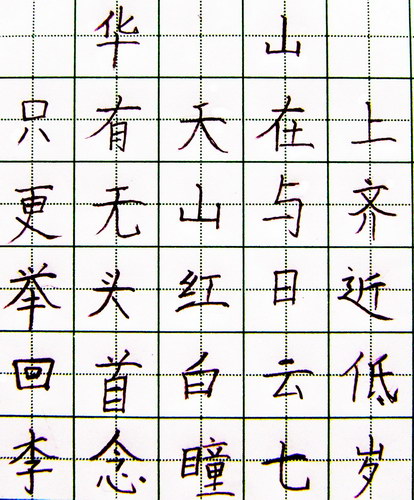 华山
只有天在上
更无山与齐
举头红日近
回首白云低
李念瞳七岁